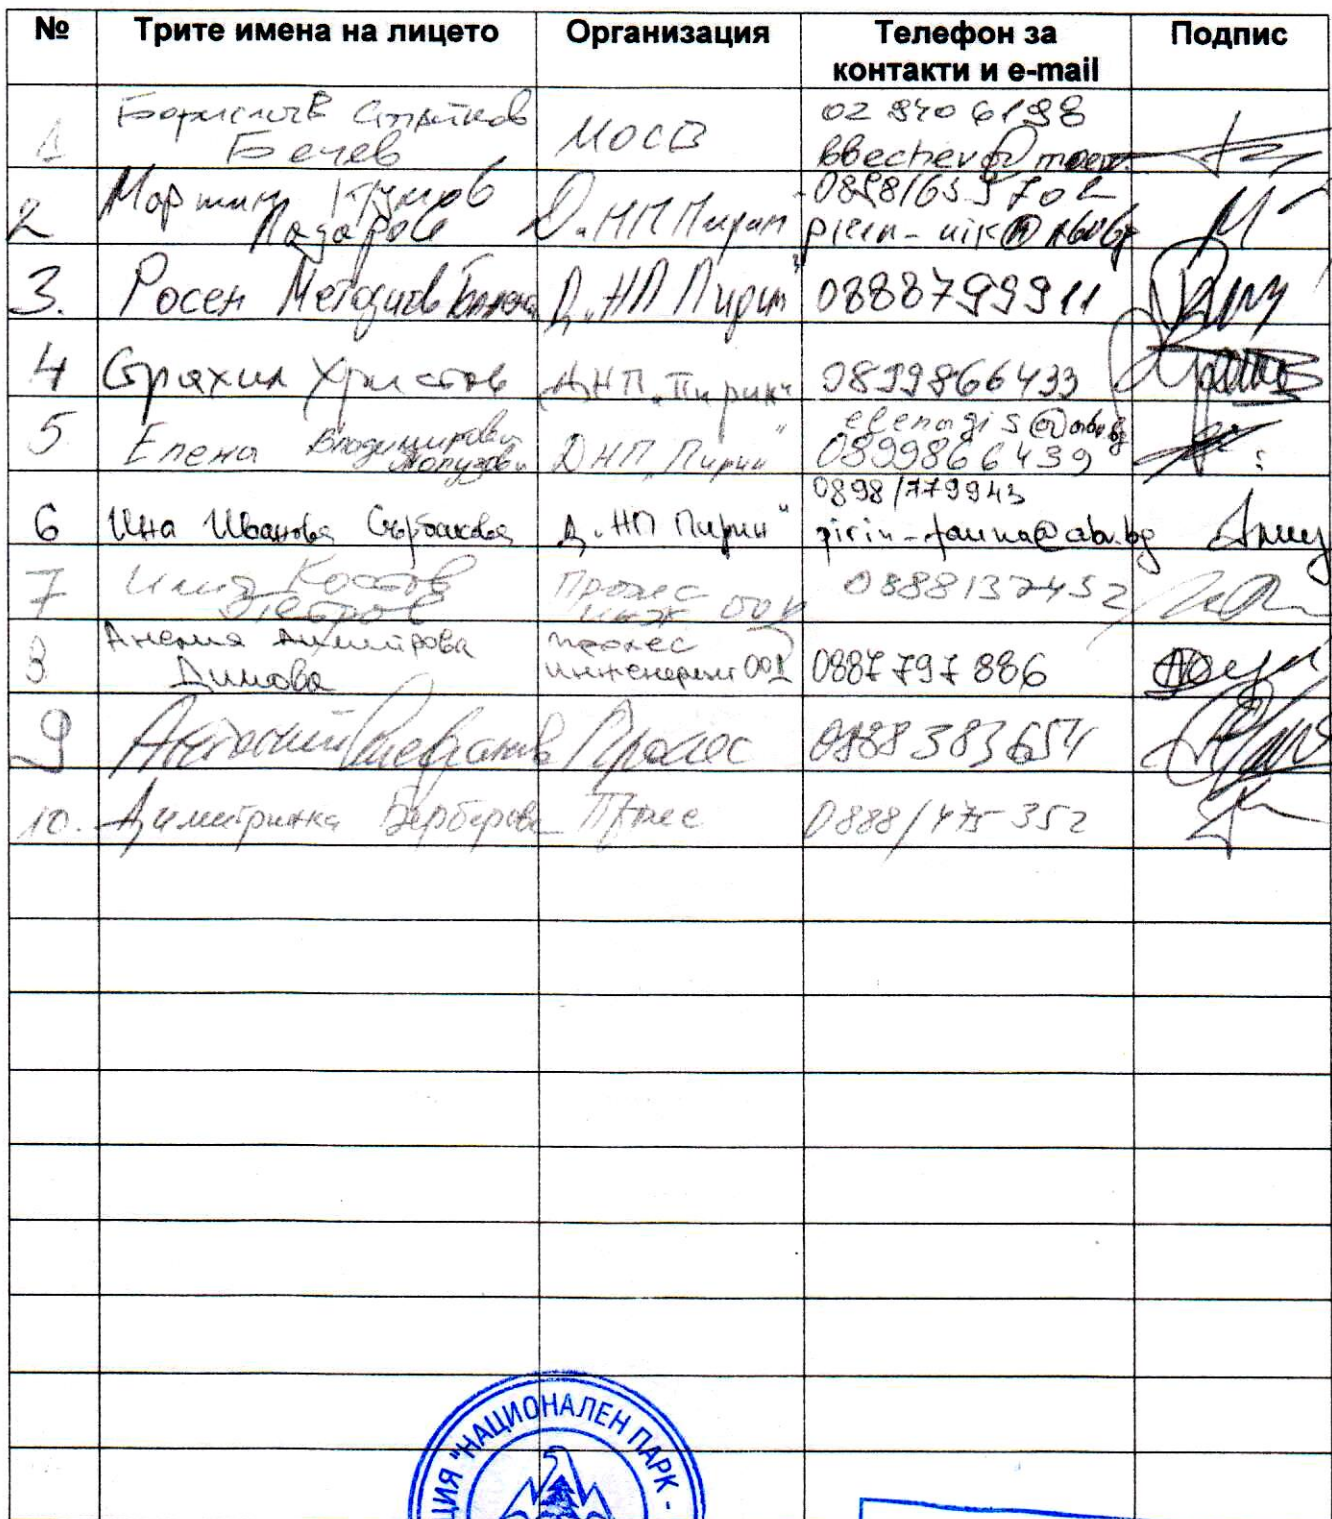 № Трите имена на лицето Организация Телефон за контакти и e-mail Подпис
1 Борислав
Бечев МОСВ 02 940 6198
bbechev@moew.
2 Мартин Кумов
Лазаров Д.НП Пирин
pirin-nik@abv.bg
3. Росен Методиев Д „НП Пирин" 0888799911
4 Страхил Христов ДНП „Пирин" 0899866433
5 Елена Владимирова ДНП „Пирин" elenagis@abv.bg
0899866439
6 Ина Иванова Д „НП Пирин" 0898/779943
pirin-fauna@abv.bg
7 Илия Костов
Петров Пролес
инж ООД 0888137452
8. Анелия Димитрова
Димова Пролес
инженеринг ООД 0887 797 886
9 Антоний Пролес 0888 383654
10. Димитринка Берберова Пролес 0888/475 352
ЦИЯ "НАЦИОНАЛЕН ПАРК -